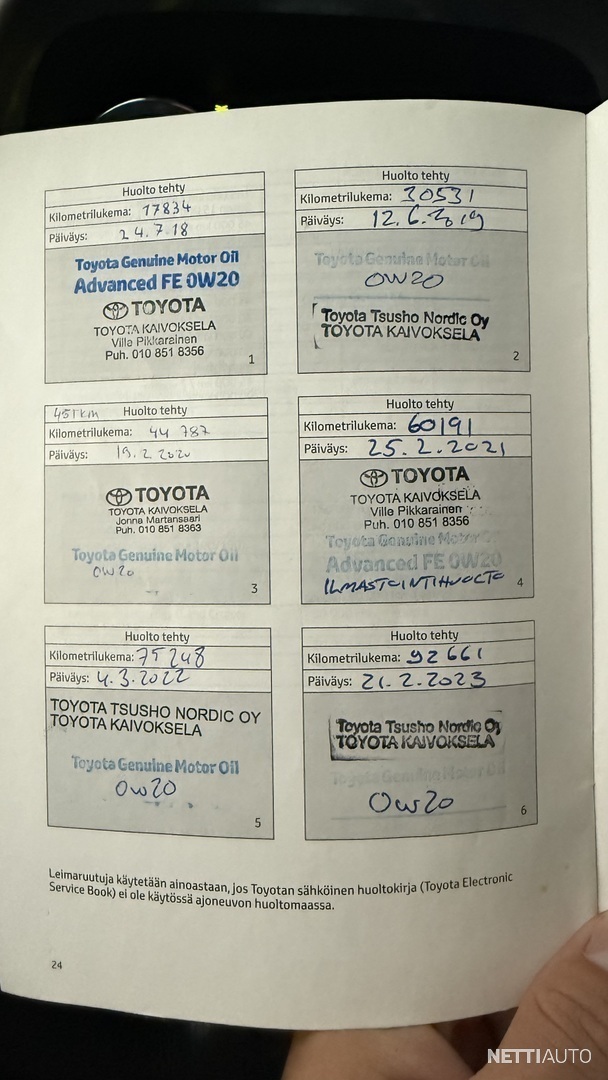 Huolto tehty
Kilometrilukema: 17834
Päiväys: 24.7.18
Toyota Genuine Motor Oil
Advanced FE 0W20
TOYOTA
TOYOTA KAIVOKSELA
Ville Pikkarainen
Puh. 010 851 8356
1
Huolto tehty
Kilometrilukema: 30531
Päiväys: 12.6.2019
Toyota Genuine Motor Oil
0W20
Toyota Tsusho Nordic Oy
TOYOTA KAIVOKSELA
2
45Tkm Huolto tehty
Kilometrilukema: 44 787
Päiväys: 19.2.2020
TOYOTA
TOYOTA KAIVOKSELA
Jonna Martansaari
Puh. 010 851 8363
Toyota Genuine Motor Oil
0W20
3
Huolto tehty
Kilometrilukema: 60191
Päiväys: 25.2.2021
TOYOTA
TOYOTA KAIVOKSELA
Ville Pikkarainen
Puh. 010 851 8356
Toyota Genuine Motor Oil
Advanced FE 0W20
ILMASTOINTIHUOLTO
4
Huolto tehty
Kilometrilukema: 75248
Päiväys: 4.3.2022
TOYOTA TSUSHO NORDIC OY
TOYOTA KAIVOKSELA
Toyota Genuine Motor Oil
0w20
5
Huolto tehty
Kilometrilukema: 92661
Päiväys: 21.2.2023
Toyota Tsusho Nordic Oy
TOYOTA KAIVOKSELA
Toyota Genuine Motor Oil
0w20
6
Leimaruutuja käytetään ainoastaan, jos Toyotan sähköinen huoltokirja (Toyota Electronic
Service Book) ei ole käytössä ajoneuvon huoltomaassa.
24
NETTIAUTO